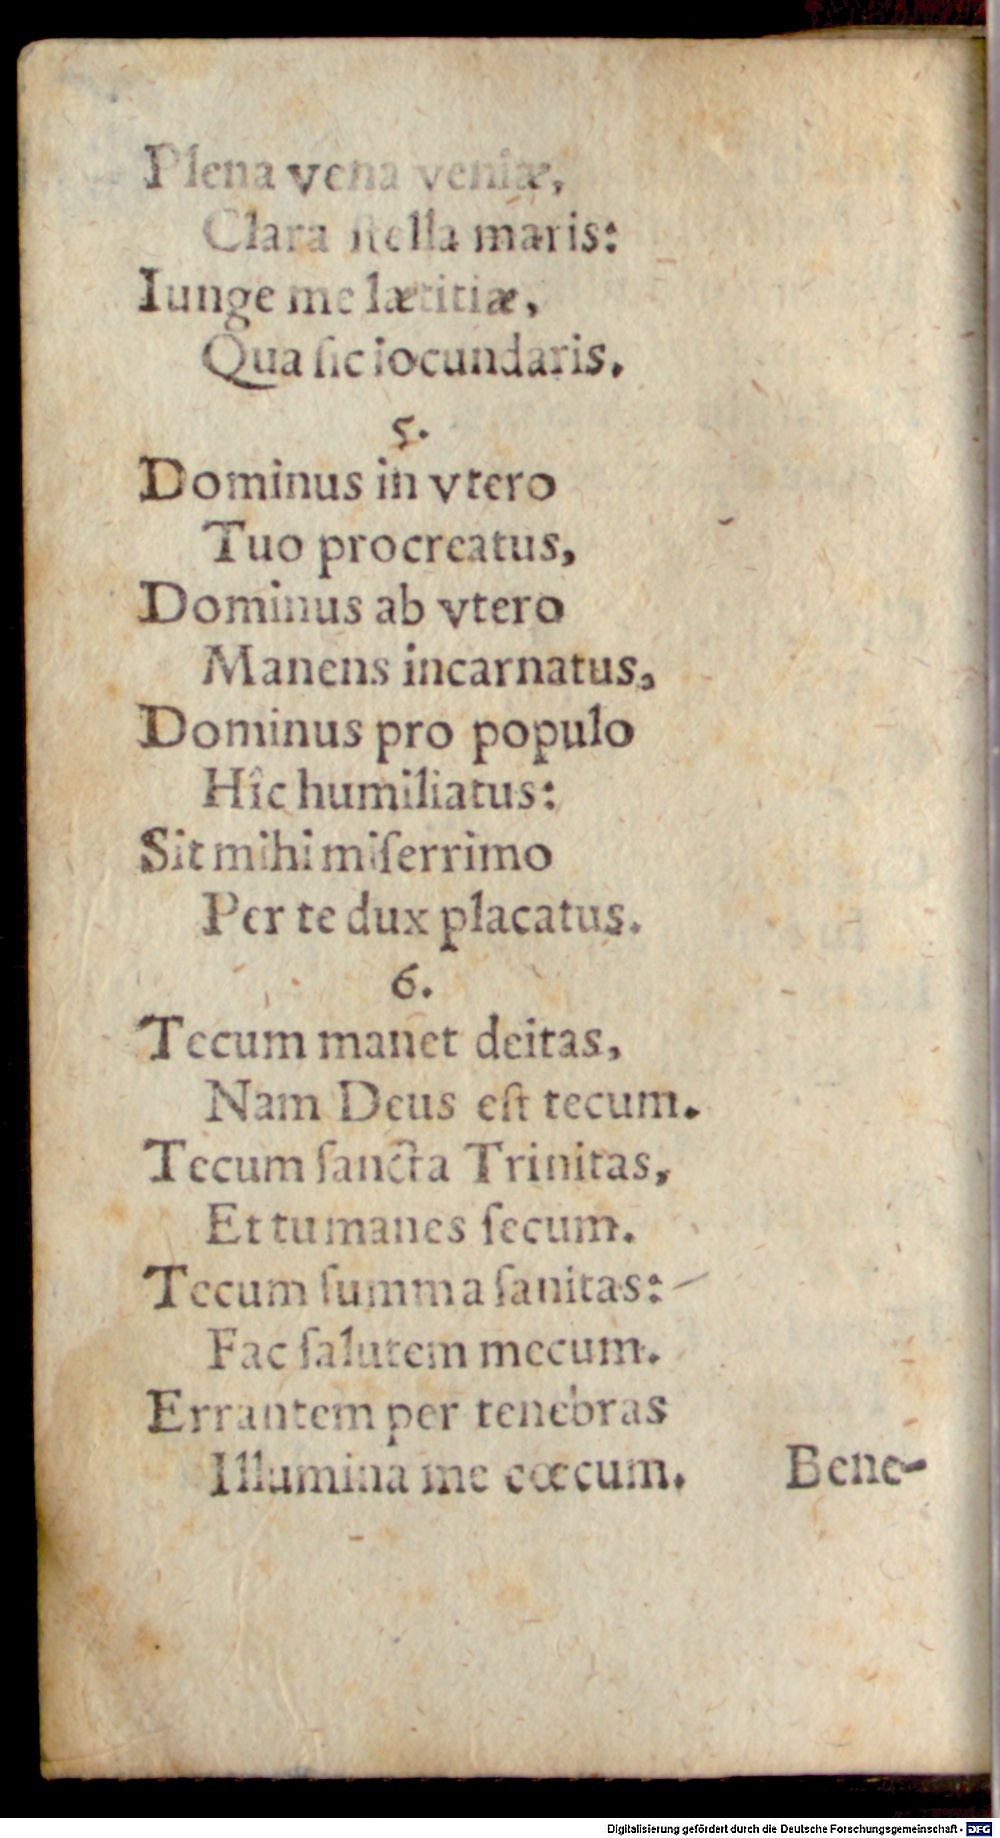 Plena vena veniæ,
Clara ſtella maris:
Iunge me lætitiæ,
Qua ſic iocundaris.
5.
Dominus in vtero
Tuo procreatus,
Dominus ab vtero
Manens incarnatus,
Dominus pro populo
Hîc humiliatus:
Sit mihi miſerrimo
Per te dux placatus.
6.
Tecum manet deitas,
Nam Deus eſt tecum.
Tecum ſancta Trinitas,
Et tu manes ſecum.
Tecum ſumma ſanitas:
Fac ſalutem mecum.
Errantem per tenebras
Illumina me cœcum.
Bene-
Digitalisierung gefördert durch die Deutsche Forschungsgemeinschaft - DFG